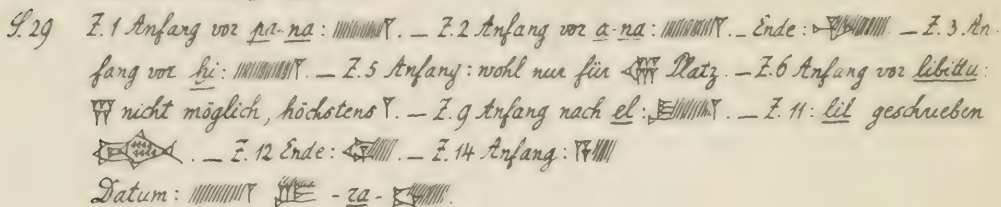 S. 29 Z. 1 Anfang vor pa-na: . _ Z. 2 Anfang vor a-na: . _ Ende: . _ Z. 3 An-
fang vor hi: . _ Z. 5 Anfang: wohl nur für Platz. _ Z. 6 Anfang vor libittu:
𒐈 nicht möglich, höchstens 𒁹. _ Z. 9 Anfang nach el: . _ Z. 11: lil geschrieben
. _ Z. 12 Ende: . _ Z. 14 Anfang:
Datum: - za - .